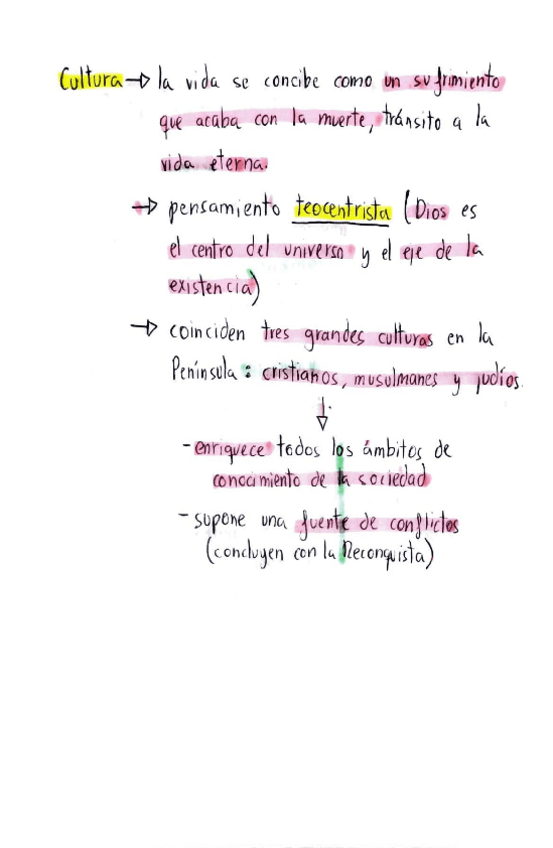 Cultura → la vida se concibe como un sufrimiento
que acaba con la muerte, tránsito a la
vida eterna.
→ pensamiento teocentrista (Dios es
el centro del universo y el eje de la
existencia)
→ coinciden tres grandes culturas en la
Península: cristianos, musulmanes y judíos.
↓
- enriquece todos los ámbitos de
conocimiento de la sociedad
- supone una fuente de conflictos
(concluyen con la Reconquista)